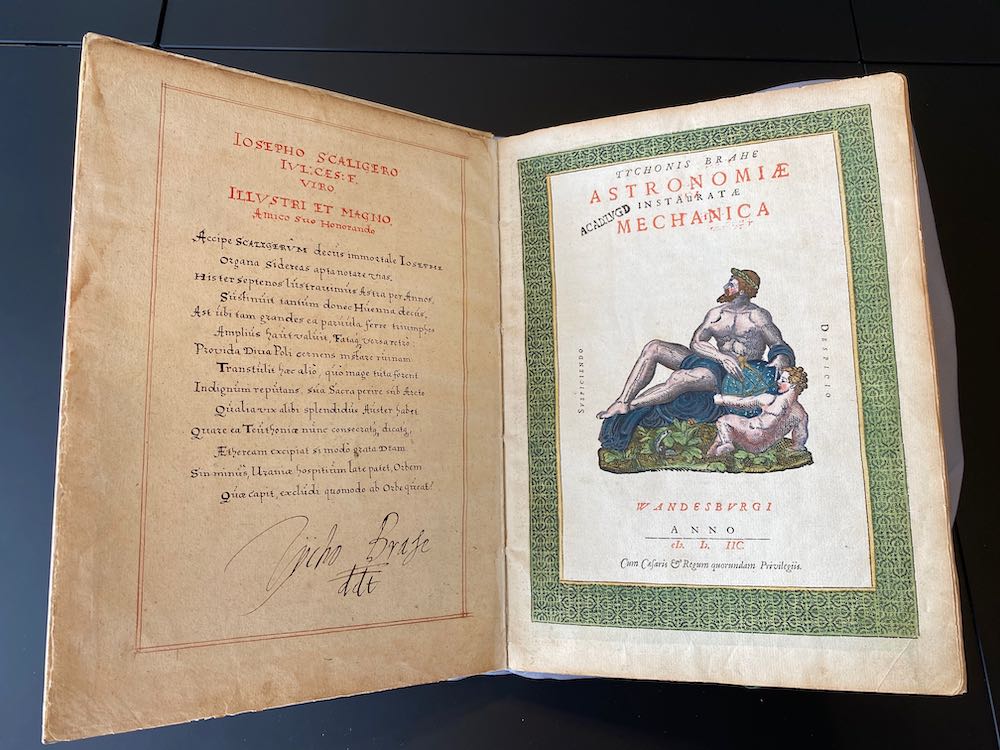 IOSEPHO SCALIGERO
IVL: CES: F.
VIRO
ILLVSTRI ET MAGNO,
Amico Suo Honorando
Accipe SCALIGERVM decus immortale IOSEPHE
Organa Sidereas apta notare vias,
His ter septenos lustravimus Astra per Annos,
Sustinuit tantum donec Huenna decus,
Ast ubi tam grandes ea parvula ferre triumphos
Amplius haut valuit, Fataq; versa retro:
Provida Diva Poli cernens instare ruinam
Transtulit hæc alio, quo mage tuta forent
Indignum reputans, sua Sacra perire sub Arcto
Qualia vix alibi splendidus Auster habet
Quare ea Teuthoniæ nunc consecratq, dicatq,
Ætheream excipiat si modo grata Deam
Sin minus, Uraniæ hospitium late patet, Orbem
Quæ capit, excludi quomodo ab Orbe queat?
Tycho Brahe
ddt
TYCHONIS BRAHE
ASTRONOMIÆ
INSTAURATÆ
ACADLVGD
MECHANICA
SVSPICIENDO
DESPICIO
WANDESBVRGI
ANNO
cIↄ. Iↄ. IIC
Cum Cæsaris & Regum quorundam Privilegiis.